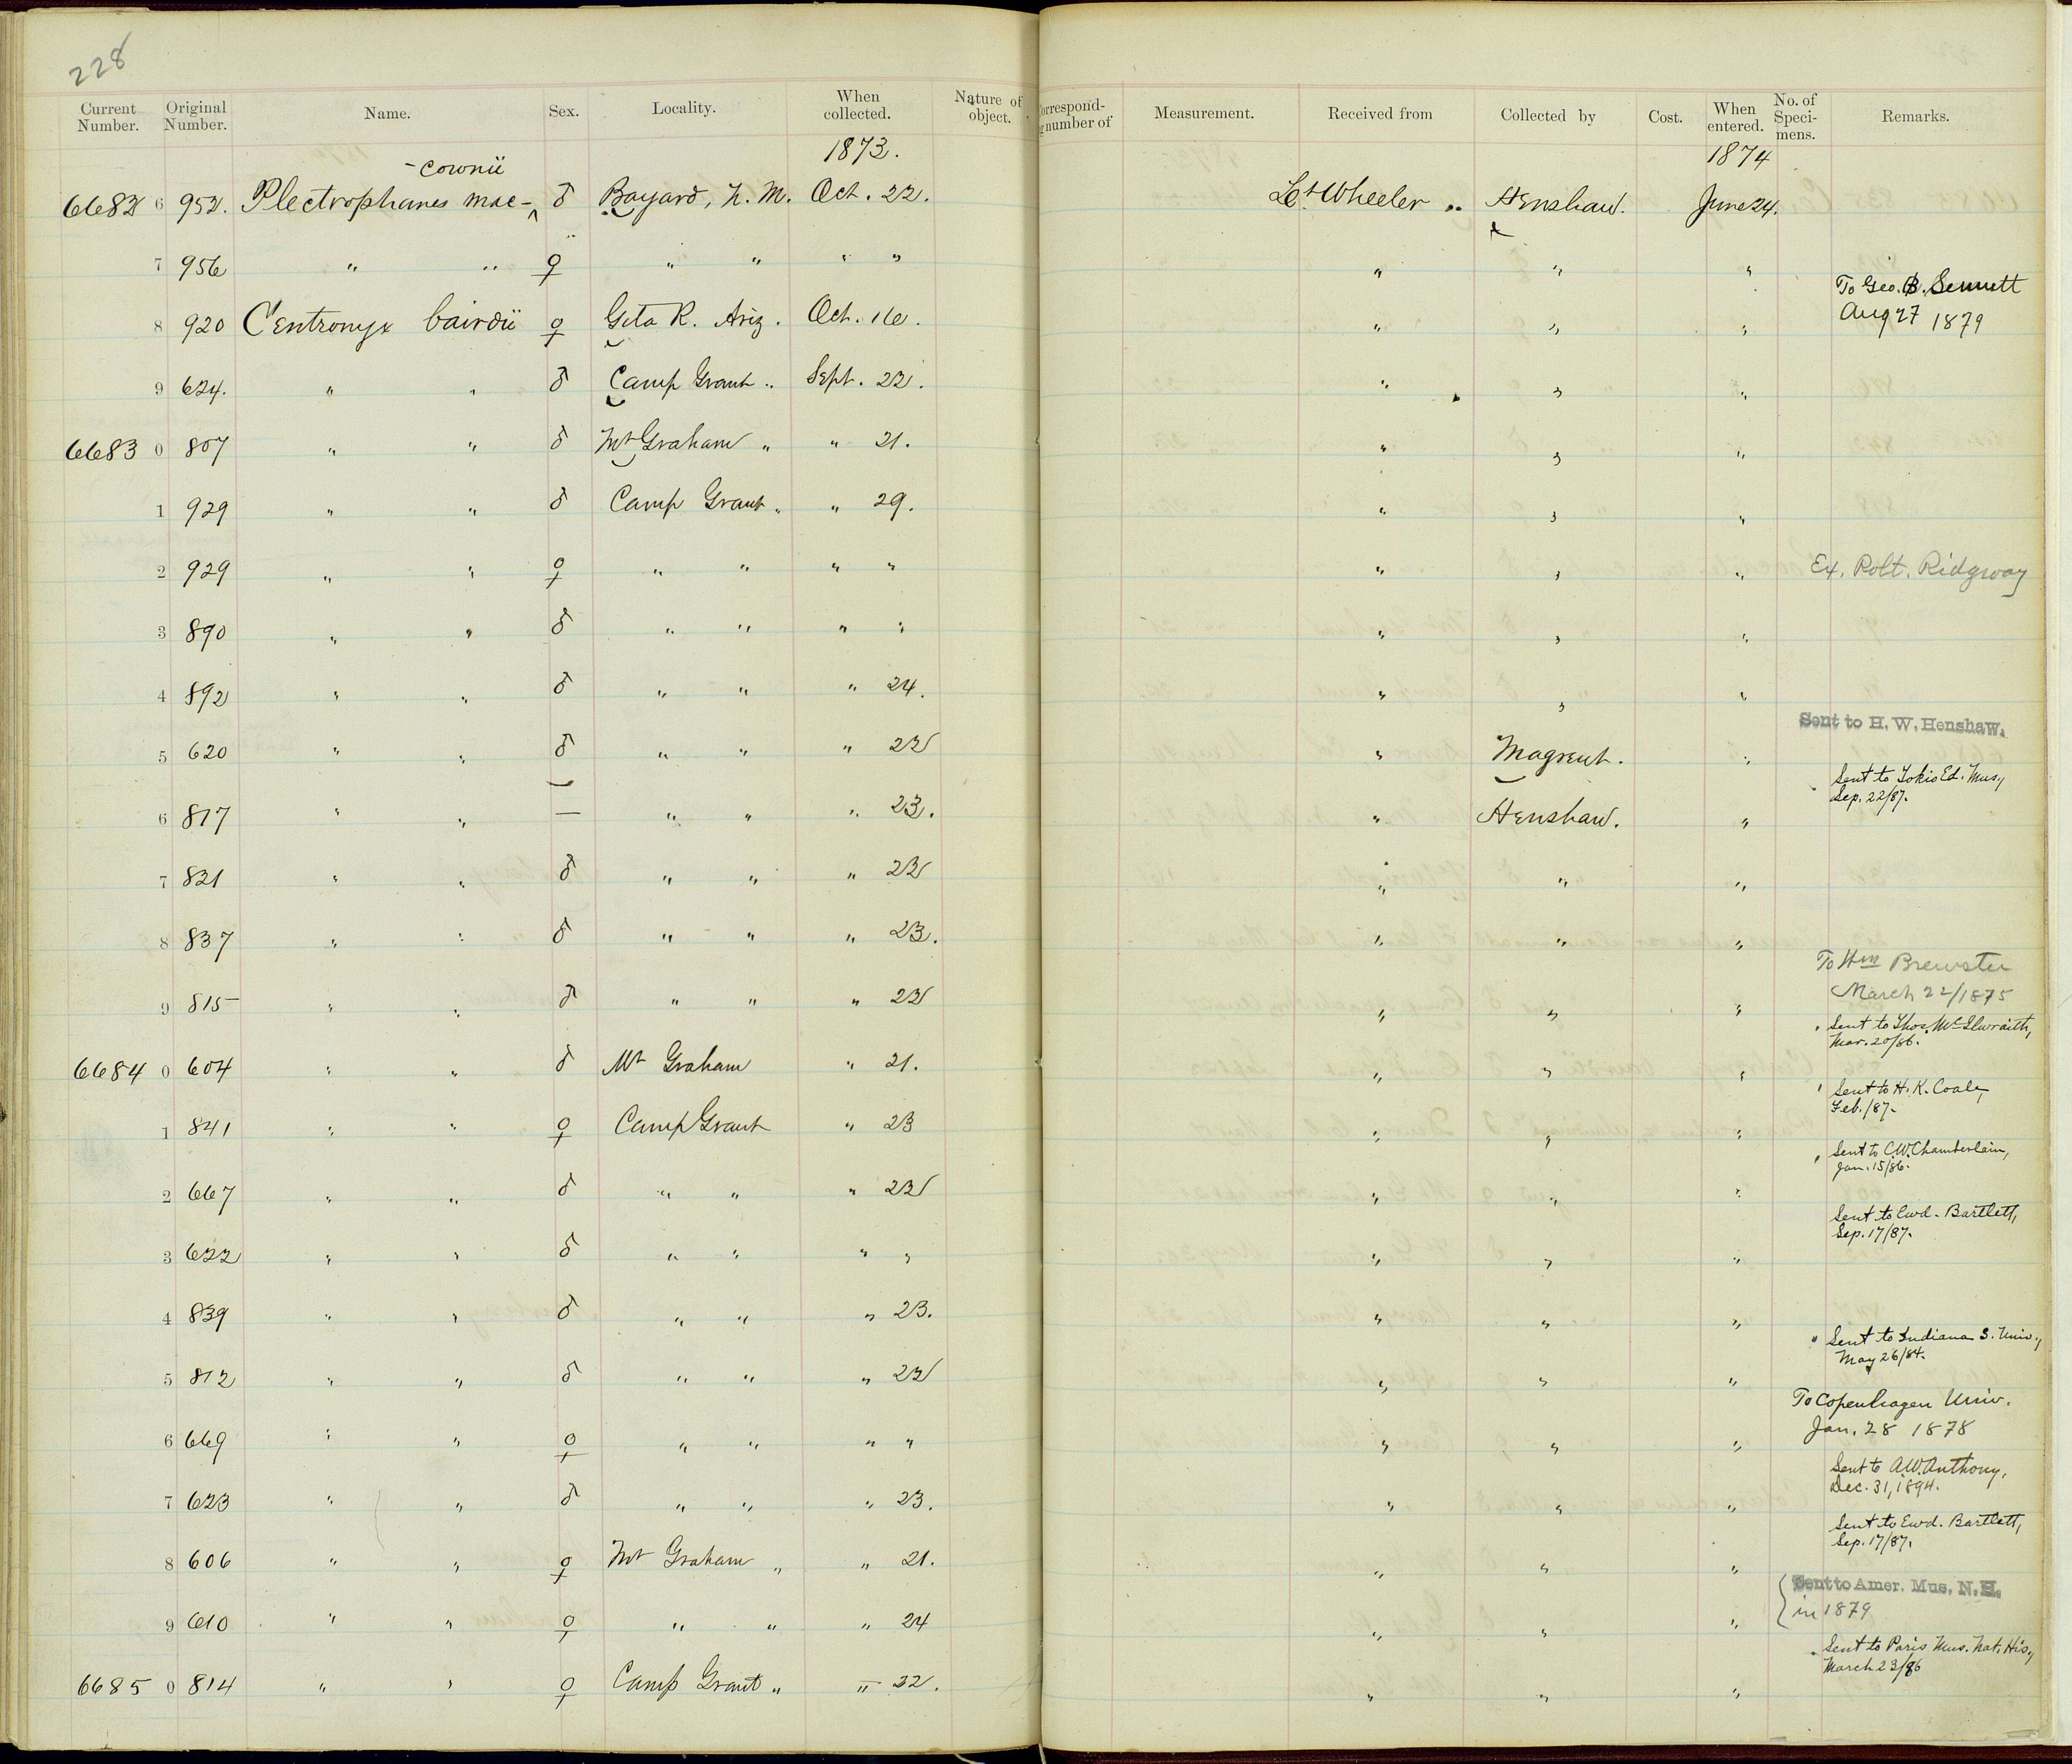 228
Current Number. Original Number. Name. Sex. Locality. When collected. Nature of object. orrespond- g number of Measurement. Received from Collected by Cost. When entered. No. of Speci- mens. Remarks.
1873. 1874
-cownii
6682 6 952. Plectrophanes mac-^ ♂ Bayard, N. M. Oct. 22. Lt Wheeler Henshaw. June 24.
7 956 " " ♀ " " " " " " "
To Geo. B. Sennett
Aug 27 1879
8 920 Centronyx bairdii ♀ Gila R. Ariz. Oct. 16. " " "
9 624. " " ♂ Camp Grant " Sept. 22. " " "
6683 0 807 " " ♂ Mt Graham " " 21. " " "
1 929 " " ♂ Camp Grant " " 29. " " "
2 929 " " ♀ " " " " " " " Ex. Robt. Ridgway
3 890 " " ♂ " " " " " " "
4 892 " " ♂ " " " 24. " " "
Sent to H. W. Henshaw.
5 620 " " ♂ " " " 22 " "
Sent to Tokio Ed. Mus,
Sep. 22/87.
6 817 " " — " " " 23. " Henshaw. "
7 821 " " ♂ " " " 22 " " "
8 837 " " ♂ " " " 23. " " "
To Wm Brewster
March 22/1875
9 815 " " ♂ " " " 22 " " "
Sent to Thos. McIlwraith,
Mar. 20/86.
6684 0 604 " " ♂ Mt Graham " 21. " " "
Sent to H. K. Coale,
Feb./87.
1 841 " " ♀ Camp Grant " 23 " " "
Sent to C.W. Chamberlain,
Jan. 15/86.
2 667 " " ♂ " " " 22 " " "
Sent to Ewd. Bartlett,
Sep. 17/87.
3 622 " " ♂ " " " " " " "
4 839 " " ♂ " " " 23. " " "
Sent to Indiana S. Univ.,
May 26/84.
5 812 " " ♂ " " " 22 " " "
To Copenhagen Univ.
Jan. 28 1878
6 669 " " ♀ " " " " " " "
Sent to A.W. Anthony,
Dec. 31, 1894.
7 623 " " ♂ " " " 23. " " "
Sent to Ewd. Bartlett,
Sep. 17/87.
8 606 " " ♀ Mt Graham " " 21. " " "
Sent to Amer. Mus. N.H.
in 1879
9 610 " " ♀ " " " 24 " " "
Sent to Paris Mus. Nat. His,
March 23/86
6685 0 814 " " ♀ Camp Grant " " 22. " " "